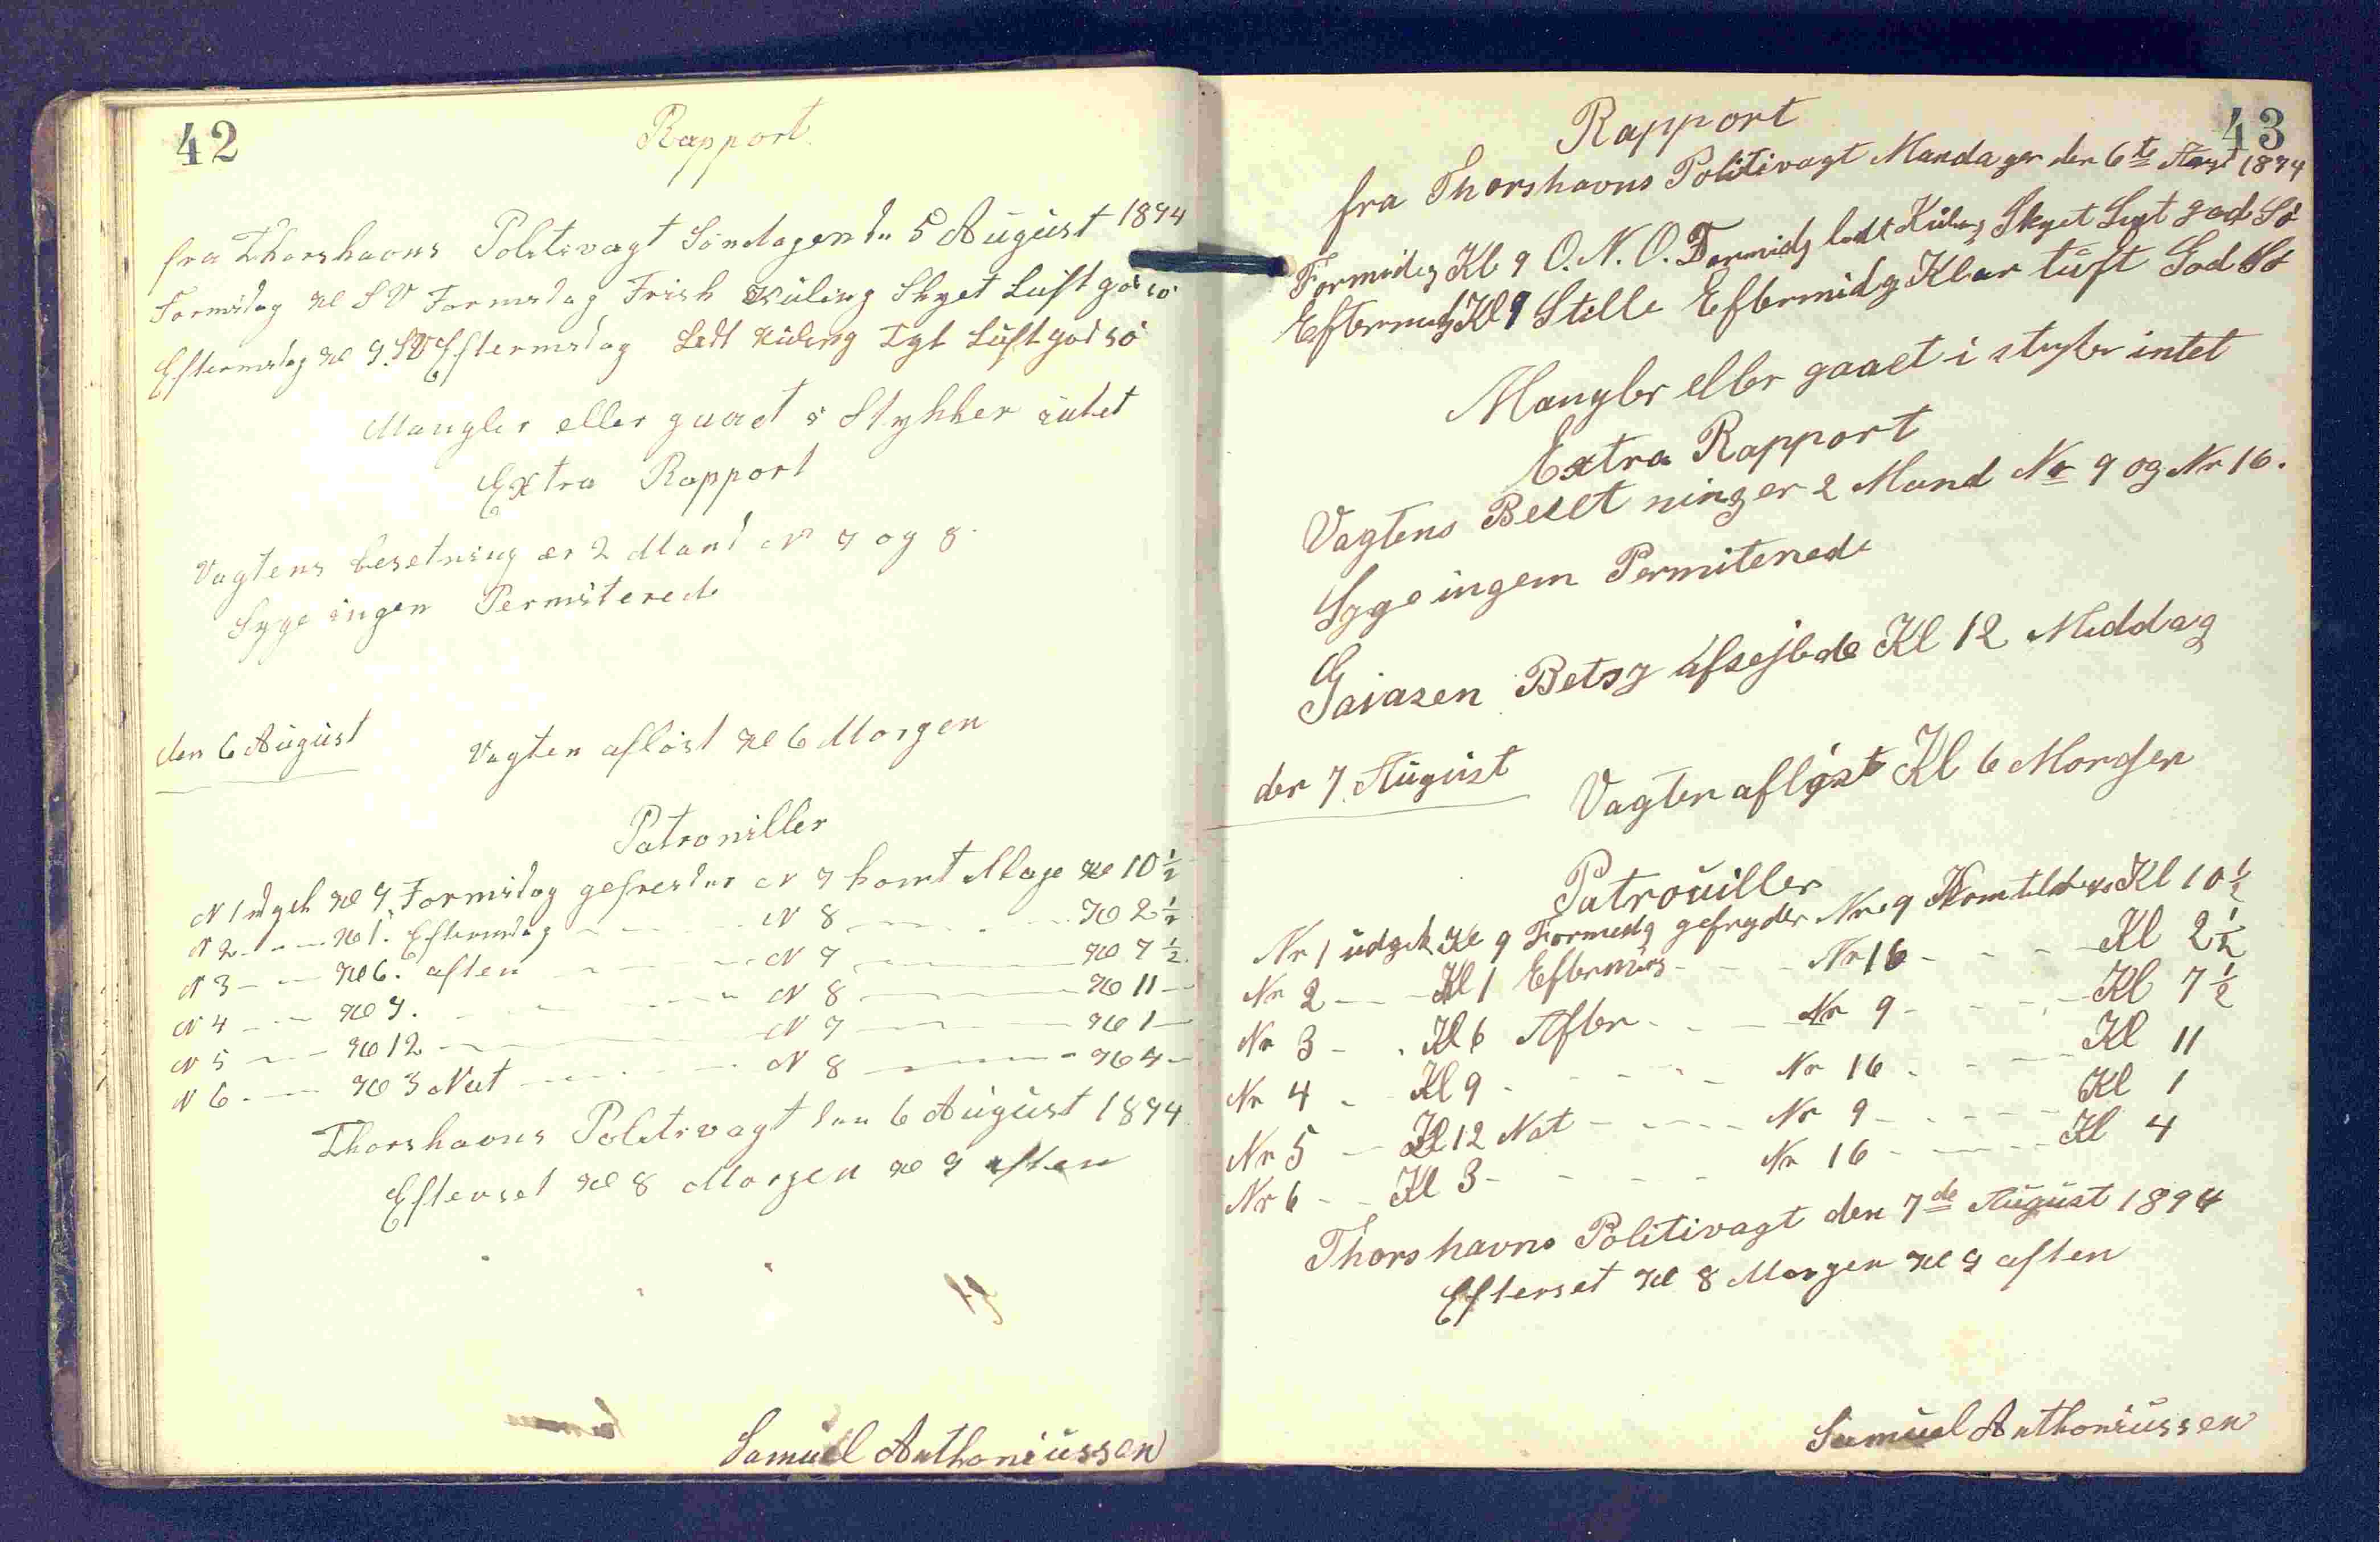 42
Rapport
fra Thorshavns Politivagt Söndagen dn 5 August 1894
Formidag Kl SV Formidag Frisk Küling Skyet Luft god sö
Eftermidag Kl 9 SV Eftermidag Lidt Küling Tyt Lüft god sö
Mangler eller gaaet i Stykker intet
Extra Rapport
Vagtens besetning er 2 Mand N 9 og 8
Syge ingen Permiterede
den 6 Augüst Vagten aflöst Kl 6 Morgen
Patroniller
N 1 udgek Kl 9 Formidag gefreider N 9 komt tilbage Kl 10 1/2
N 2 Kl 1. Eftermidag N 8 Kl 2 1/2
N 3 Kl 6. aften N 9 Kl 7 1/2
N 4 Kl 9. N 8 Kl 11
N 5 Kl 12 N 9 Kl 1
N 6 Kl 3 Nat N 8 Kl 4
Thorshavns Politivagt den 6 Augüst 1894
Efterset Kl 8 Morgen Kl 9 aften
Samuel Anthoniussen
43
Rapport
fra Thorshavns Politivagt Mandagen den 6te Aug 1894
Formidag Kl 9 O.N.O. Formidg ledt Küling Skyet Luft god Sö
Eftermidg Kl 9 Stille Eftermidg Klar lüft God Sö
Mangler eller gaaet i stykker intet
Extra Rapport
Vagtens Besetninger 2 Mand Nr 9 og Nr 16.
Syge ingem Permiterede
Gaiasen Betsy afsejlede Kl 12 Middag
den 7 Augüst Vagten afløst Kl 6 Morgen
Patroüiller
Nr 1 üdgik Kl 9 Formidg gefryder Nr 9 Kom tilbage Kl 10 1/2
Nr 2 Kl 1 Eftermidg Nr 16 Kl 2 1/2
Nr 3 Kl 6 Aften Nr 9 Kl 7 1/2
Nr 4 Kl 9 Nr 16 Kl 11
Nr 5 Kl 12 Nat Nr 9 Kl 1
Nr 6 Kl 3 Nr 16 Kl 4
Thorshavns Politivagt den 7de August 1894
Efterset Kl 8 Morgen Kl 9 aften
Samuel Anthoniussen